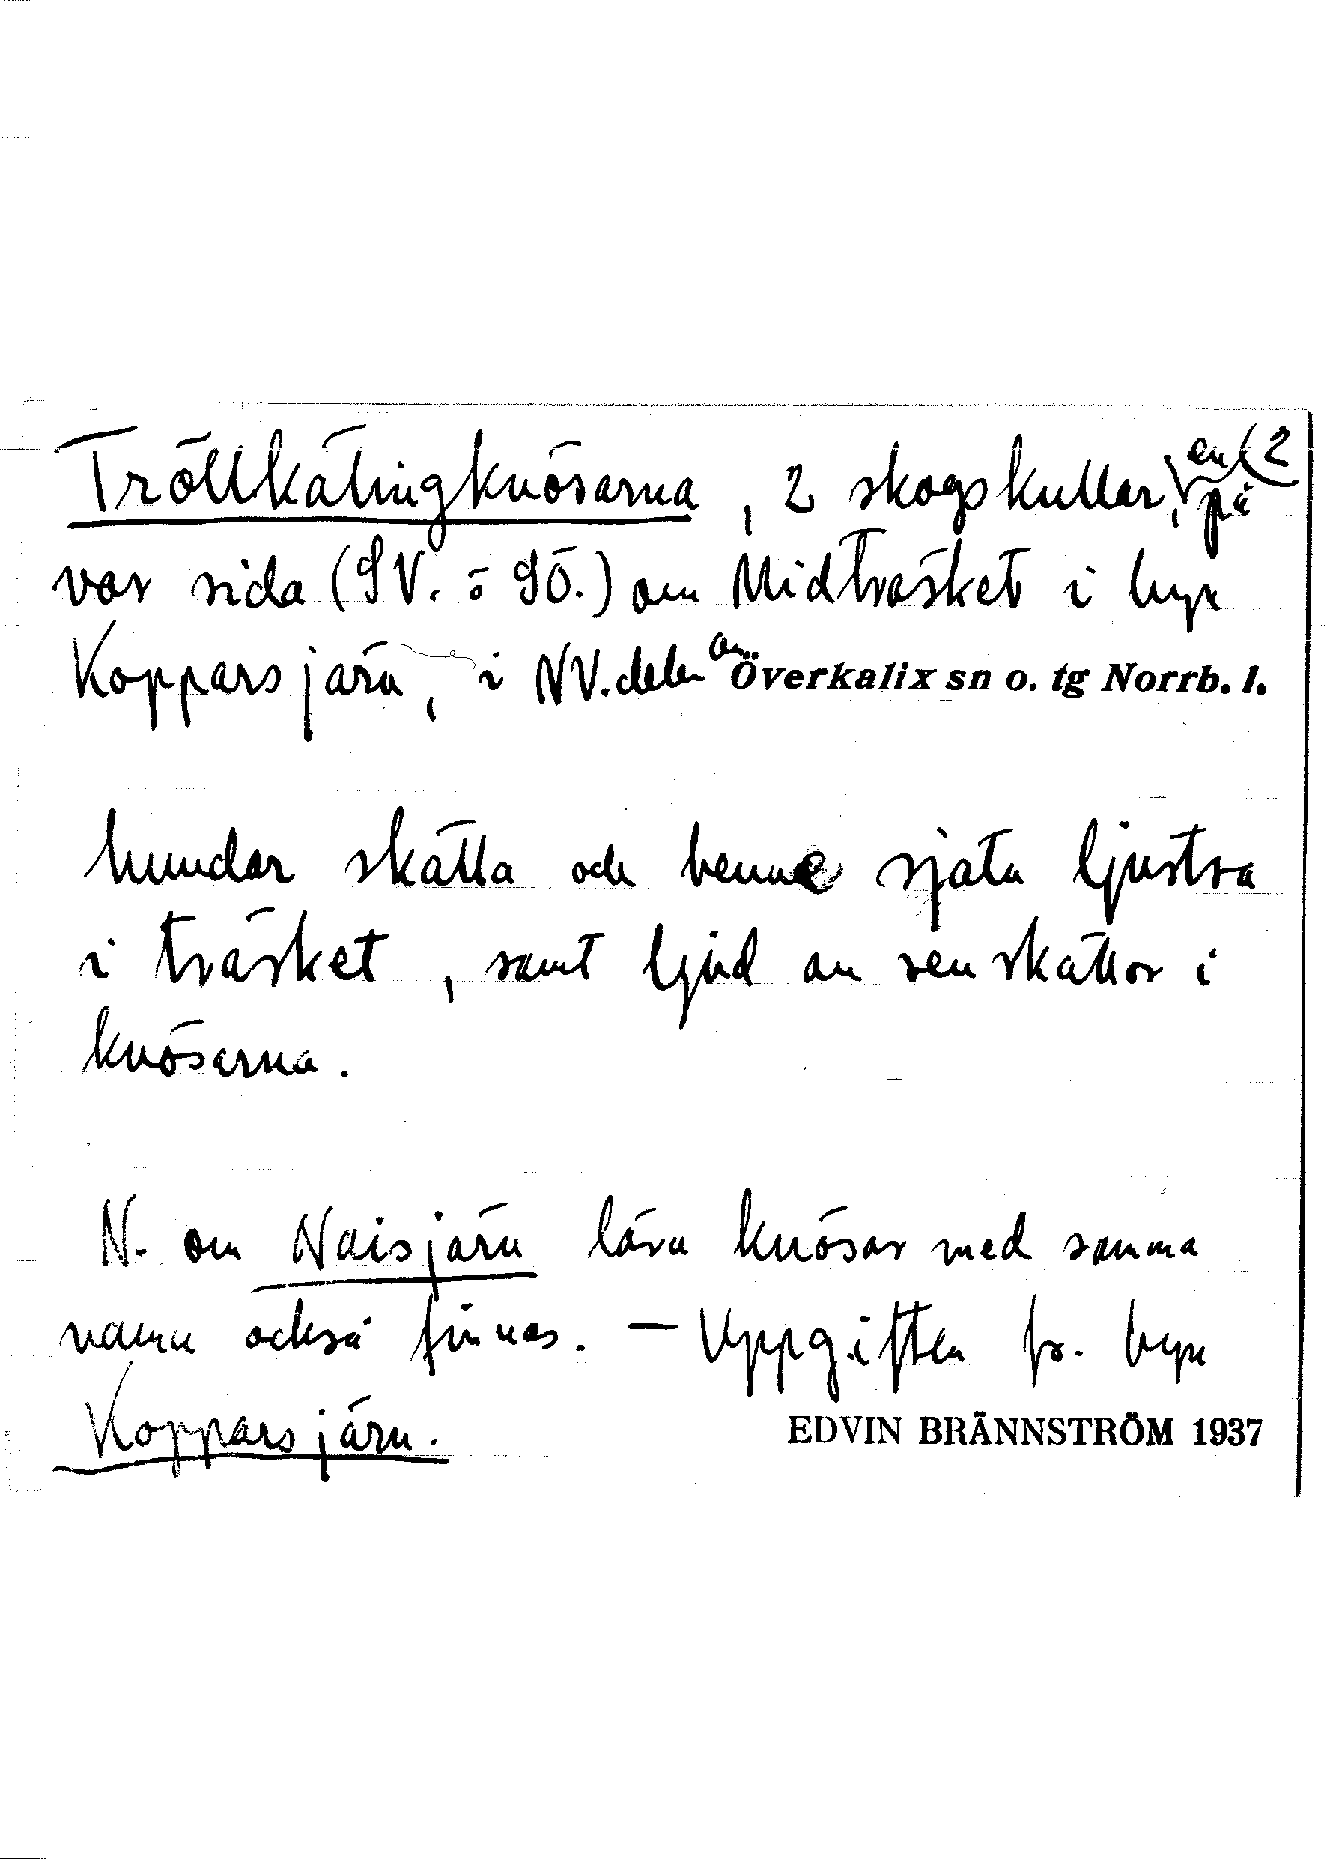 Tröllkälingknösarna, 2 skogskullar, en (2
på
var sida (SV. o SÖ.) om Midträsket i byn
Kopparsjärn, i NV.delen av Överkalix sn o. tg Norrb. l.
hundar skälla och henne själv ljustra
i träsket, samt ljud av renskällor i
knösarna.
N. om Naisjärn lära knösar med samma
namn också finnas. — Uppgiften fr. byn
Kopparsjärn.
EDVIN BRÄNNSTRÖM 1937